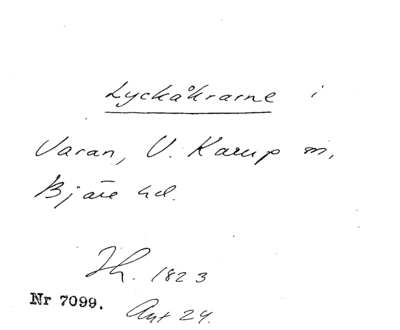 Lyckåkrarne i
Varan, V. Karup sn,
Bjäre hd.
Jh. 1823
Nr 7099.
Akt 24.